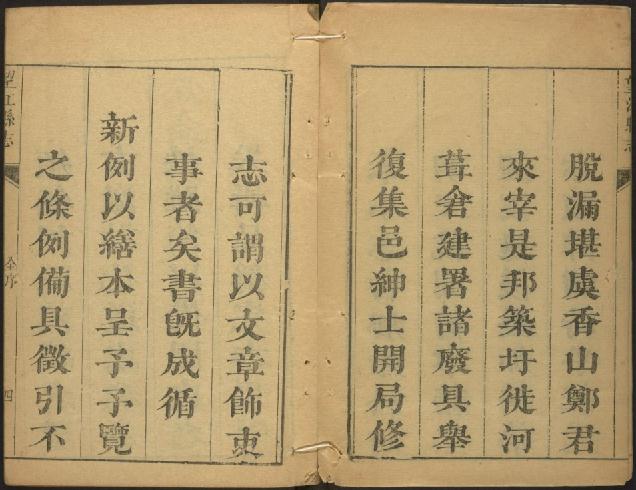 脫漏堪虞香山鄭君
來宰是邦築圩徙河
葺倉建署諸廢具舉
復集邑紳士開局修
志可謂以文章飾吏
事者矣書既成循
新例以繕本呈予予覽
之條例備具徵引不
望江縣志
序
四